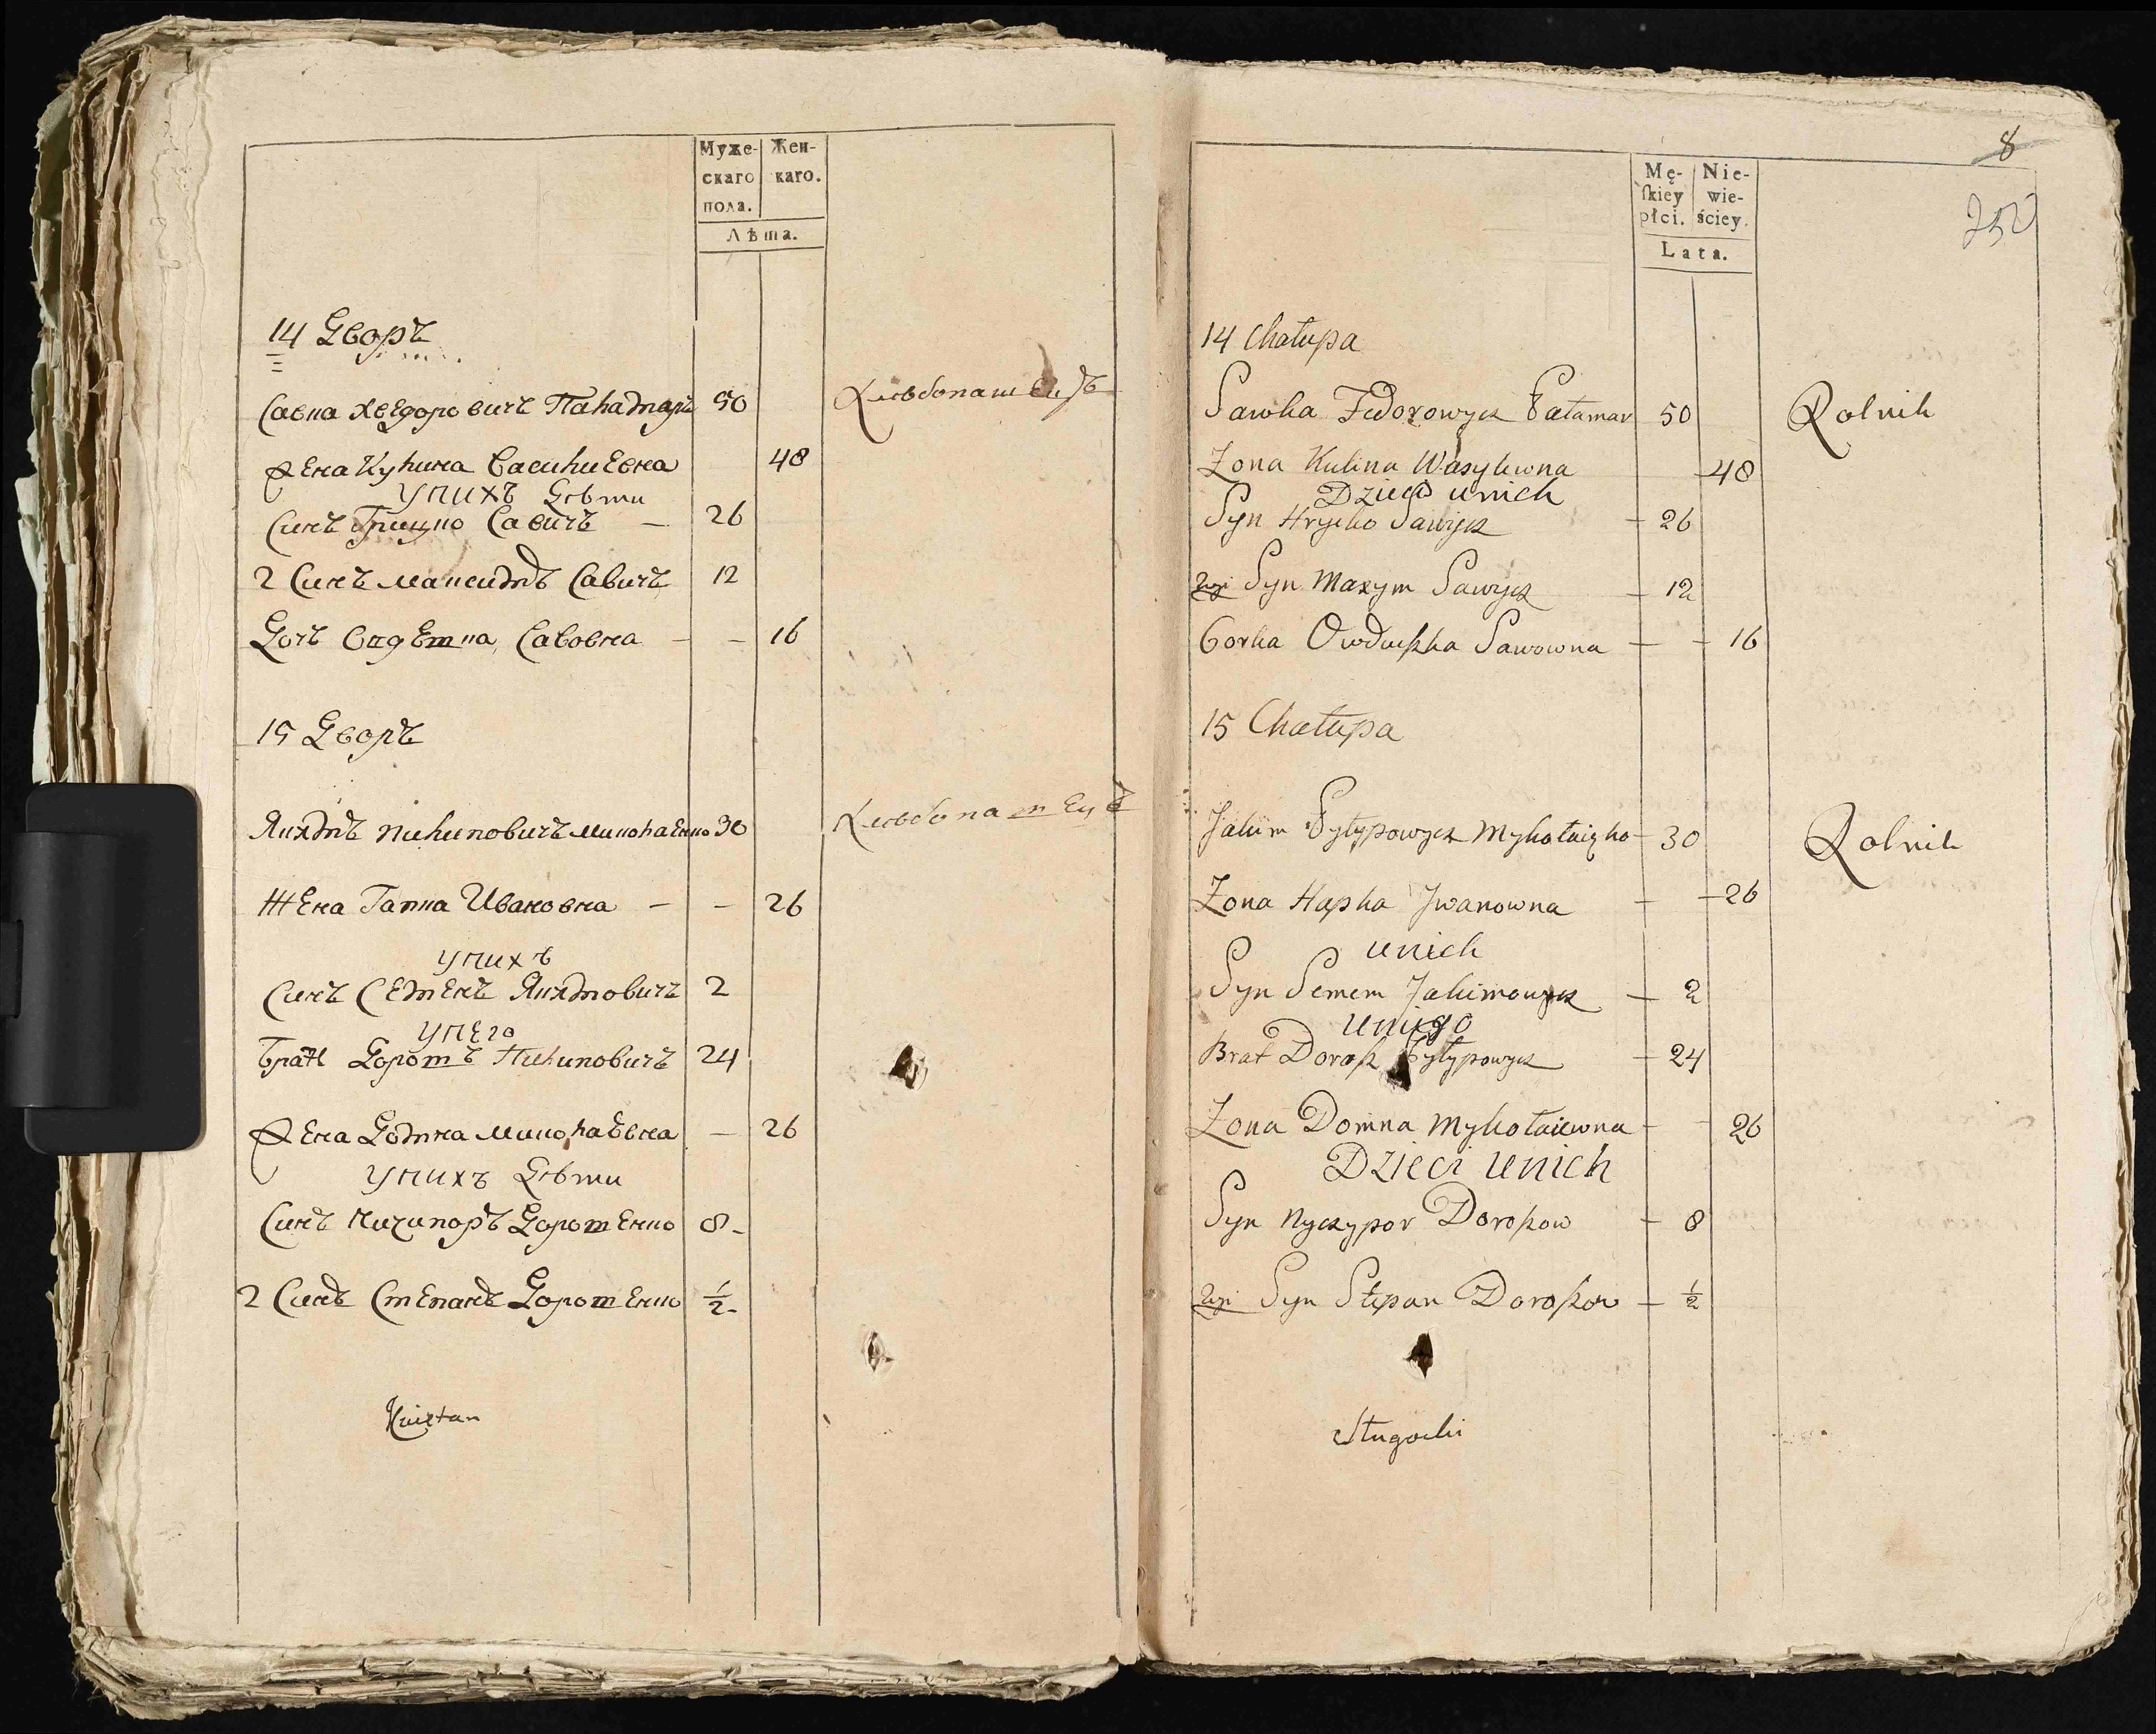 Муже-
скаго
пола.
Жен-
каго.
Лѣта.
14 Дворъ
Савка Хведоровичъ Паламаръ 50 Хлѣбопашецъ
Жена Кулина Василиевна 48
У нихъ Дѣти
Синъ Грицко Савичъ — 26
2 Синъ Максимъ Савичъ 12
Дочъ Овдешка Савовна — — 16
15 Дворъ
Якимъ Пилиповичъ Миколаенко 30 Хлѣбопашецъ
Жена Гапка Ивановна — — 26
У нихъ
Синъ Семенъ Якимовичъ 2
У него
Братъ Дорошъ Пилиповичъ 24
Жена Домна Миколаевна — 26
У нихъ Дѣти
Синъ Ничипоръ Дорошенко 8 -
2 Синъ Степанъ Дорошенко ½ -
8
Mę-
ſkiey
płci.
Nie-
wie-
ściey.
Lata.
14 Chałupa
Sawka Fedorowycz Pałamar 50 Rolnik
Zona Kulina Wasylewna 48
Dzieci u nich
Syn Hrycko Sawycz — 26
2gi Syn Maxym Sawycz — 12
Corka Owduszka Sawowna — — 16
15 Chałupa
Jakim Pyłypowycz Mykołaięko 30 Rolnik
Zona Hapka Jwanowna — — 26
u nich
Syn Semem Jakimowycz — 2
u niego
Brat Dorosz Pyłypowycz — 24
Zona Domna Mykołaiewna — — 26
Dzieci u nich
Syn Nyczypor Doroszow — 8
2gi Syn Stepan Doroszow — ½